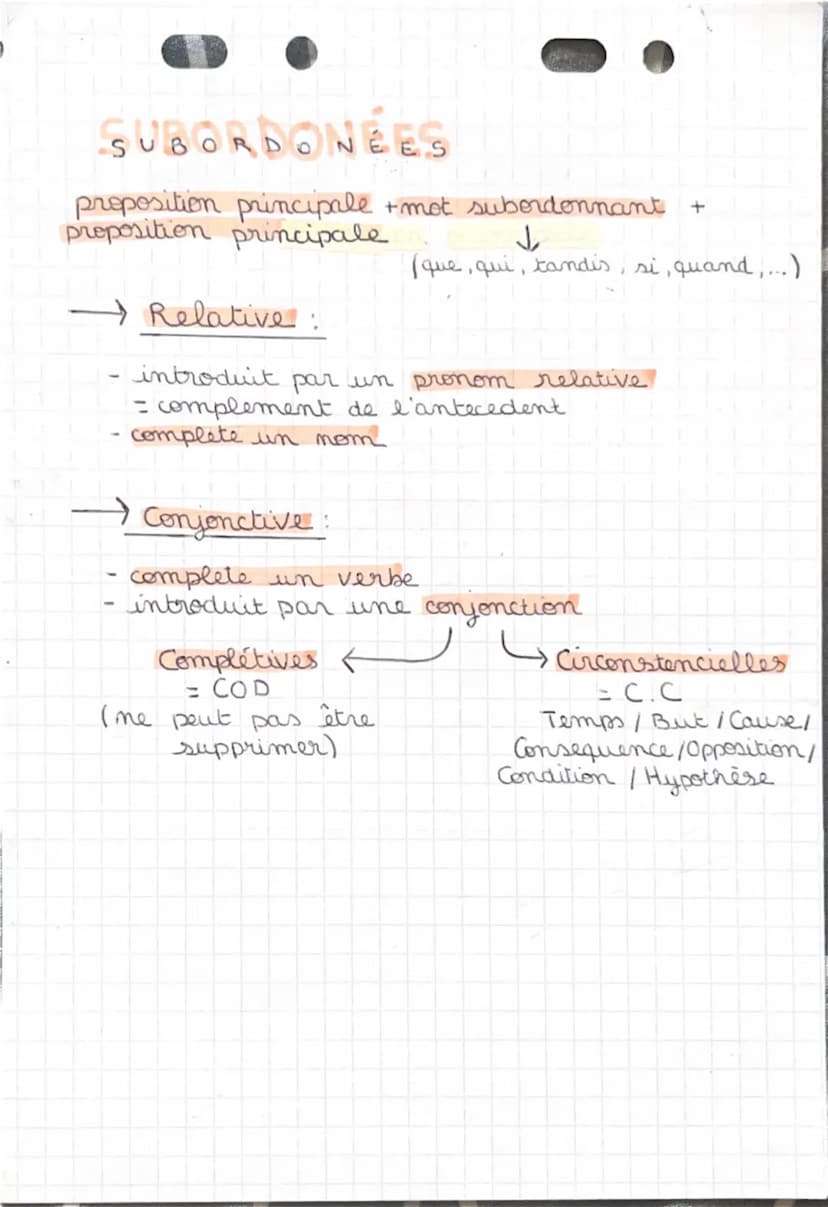 SUBORDONÉES
proposition principale + mot subordonnant +
proposition principale ↓
(que, qui, tandis, si, quand, ...)
→ Relative :
- introduit par un pronom relative
= complement de l'antecedent
- complete un nom
→ Conjonctive :
- complete un verbe
- introduit par une conjonction
Complétives ← → Circonstencielles
= COD = C.C
(ne peut pas être Temps / But / Cause /
supprimer) Consequence / Opposition /
Condition / Hypothèse